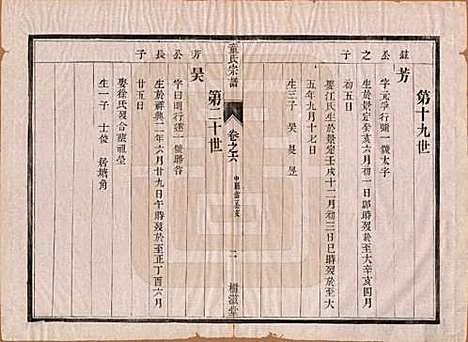 第十九世
芳
公之子
字元亨行彌一號太字
生於景定癸亥六月初一日卯時歿於大辛亥四月
初五日
娶江氏生於景定壬戌十二月初三日巳時歿於至大
五年九月十七日
生三子 昊 旻 昱
童氏宗譜
卷之六
二
樹滋堂
第二十世
昊
芳公長子
字曰明行蓮一號聯吉
生於祥興二年六月廿九日午時歿於至正丁酉六月
廿五日
娶徐氏歿合葬祖塋
生一子 士俊 居塘角